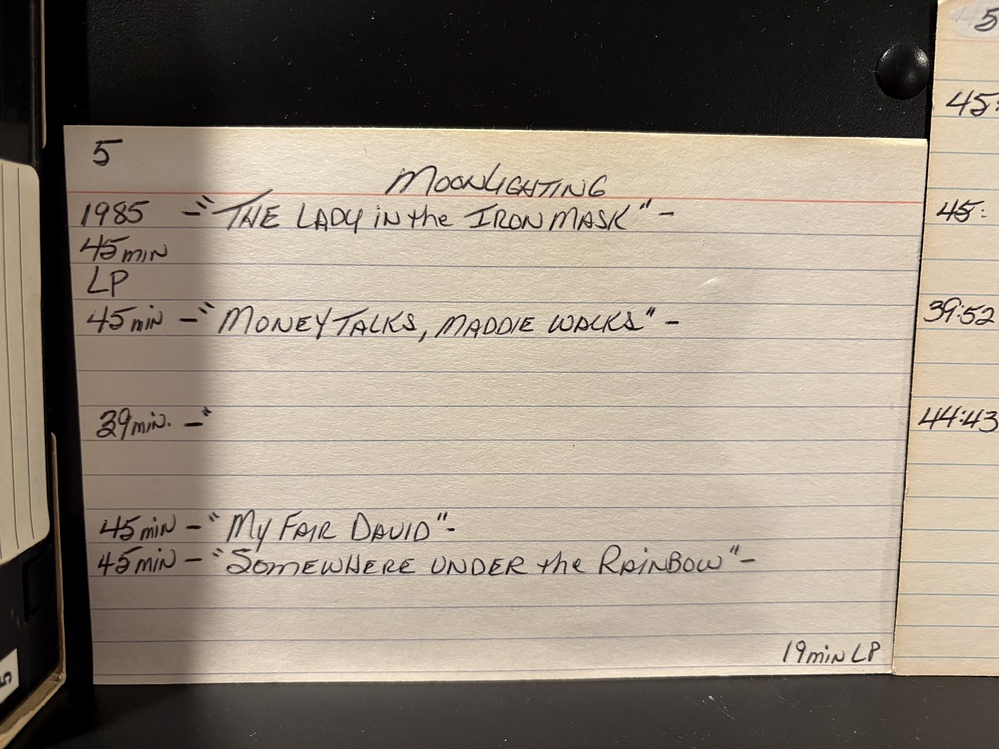 5
MOONLIGHTING
1985 - "THE LADY in the IRON MASK" -
45 min
LP
45 min - "MONEY TALKS, MADDIE WALKS" -
39 min. - "
45 min - "MY FAIR DAVID" -
45 min - "SOMEWHERE UNDER the RAINBOW" -
19 min LP
5
45:
45:
39:52
44:43
5